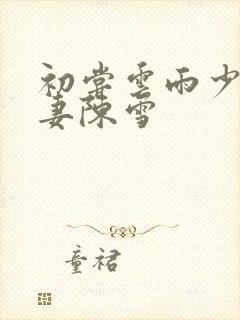 初尝云雨少
妻陈雪
童裙